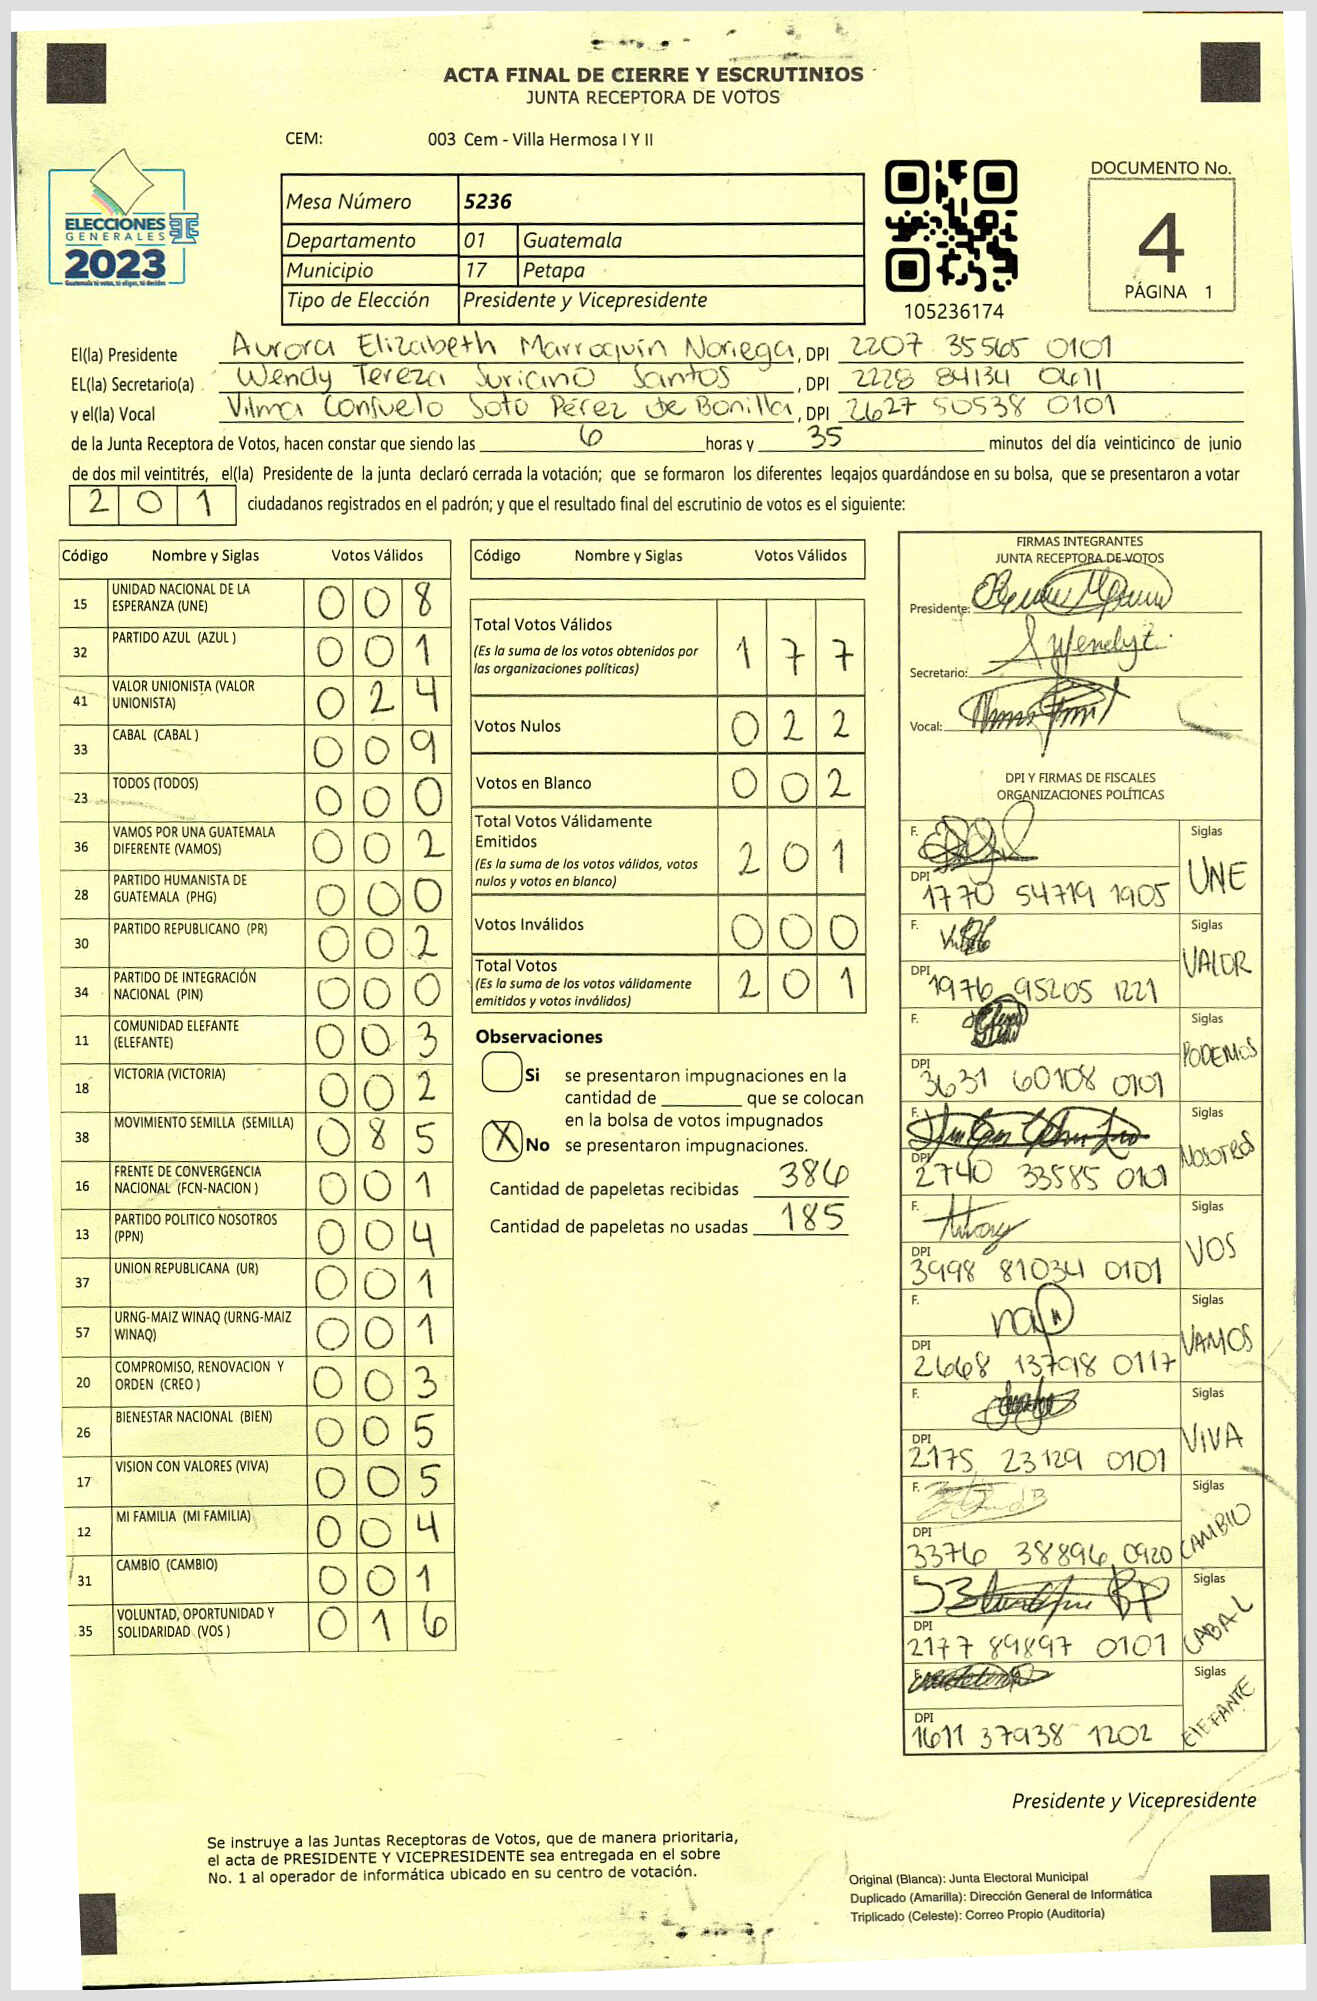 ACTA FINAL DE CIERRE Y ESCRUTINIOS
JUNTA RECEPTORA DE VOTOS
CEM: 003 Cem - Villa Hermosa I Y II
ELECCIONES
GENERALES
2023
Guatemala tú votas, tú eliges, tú decides
Mesa Número 5236
Departamento 01 Guatemala
Municipio 17 Petapa
Tipo de Elección Presidente y Vicepresidente
105236174
DOCUMENTO No.
4
PÁGINA 1
El(la) Presidente Aurora Elizabeth Marroquín Noriega, DPI 2207 35565 0101
EL(la) Secretario(a) Wendy Tereza Suriano Santos, DPI 2228 84134 0611
y el(la) Vocal Vilma Consuelo Soto Pérez de Bonilla, DPI 2627 50538 0101
de la Junta Receptora de Votos, hacen constar que siendo las 6 horas y 35 minutos del día veinticinco de junio
de dos mil veintitrés, el(la) Presidente de la junta declaró cerrada la votación; que se formaron los diferentes legajos guardándose en su bolsa, que se presentaron a votar
201 ciudadanos registrados en el padrón; y que el resultado final del escrutinio de votos es el siguiente:
Código Nombre y Siglas Votos Válidos
15 UNIDAD NACIONAL DE LA ESPERANZA (UNE) 008
32 PARTIDO AZUL (AZUL ) 001
41 VALOR UNIONISTA (VALOR UNIONISTA) 024
33 CABAL (CABAL ) 009
23 TODOS (TODOS) 000
36 VAMOS POR UNA GUATEMALA DIFERENTE (VAMOS) 002
28 PARTIDO HUMANISTA DE GUATEMALA (PHG) 000
30 PARTIDO REPUBLICANO (PR) 002
34 PARTIDO DE INTEGRACIÓN NACIONAL (PIN) 000
11 COMUNIDAD ELEFANTE (ELEFANTE) 003
18 VICTORIA (VICTORIA) 002
38 MOVIMIENTO SEMILLA (SEMILLA) 085
16 FRENTE DE CONVERGENCIA NACIONAL (FCN-NACION ) 001
13 PARTIDO POLITICO NOSOTROS (PPN) 004
37 UNION REPUBLICANA (UR) 001
57 URNG-MAIZ WINAQ (URNG-MAIZ WINAQ) 001
20 COMPROMISO, RENOVACION Y ORDEN (CREO ) 003
26 BIENESTAR NACIONAL (BIEN) 005
17 VISION CON VALORES (VIVA) 005
12 MI FAMILIA (MI FAMILIA) 004
31 CAMBIO (CAMBIO) 001
35 VOLUNTAD, OPORTUNIDAD Y SOLIDARIDAD (VOS ) 016
Código Nombre y Siglas Votos Válidos
Total Votos Válidos 177
(Es la suma de los votos obtenidos por
las organizaciones políticas)
Votos Nulos 022
Votos en Blanco 002
Total Votos Válidamente
Emitidos 201
(Es la suma de los votos válidos, votos
nulos y votos en blanco)
Votos Inválidos 000
Total Votos 201
(Es la suma de los votos válidamente
emitidos y votos inválidos)
Observaciones
Si se presentaron impugnaciones en la
cantidad de ________ que se colocan
en la bolsa de votos impugnados
X No se presentaron impugnaciones.
Cantidad de papeletas recibidas 386
Cantidad de papeletas no usadas 185
FIRMAS INTEGRANTES
JUNTA RECEPTORA DE VOTOS
Presidente:
Secretario:
Vocal:
DPI Y FIRMAS DE FISCALES
ORGANIZACIONES POLÍTICAS
F. Siglas UNE
DPI 1770 54719 1905
F. Siglas VALOR
DPI 1976 95205 1221
F. Siglas PODEMOS
DPI 3631 60108 0101
F. Siglas NOSOTROS
DPI 2740 33585 0101
F. Siglas VOS
DPI 3998 81034 0101
F. Siglas VAMOS
DPI 2668 13798 0117
F. Siglas VIVA
DPI 2175 23129 0101
F. Siglas CAMBIO
DPI 3376 38896 0920
F. Siglas CABAL
DPI 2177 89897 0101
F. Siglas ElEFANTE
DPI 1611 37938 1202
Presidente y Vicepresidente
Se instruye a las Juntas Receptoras de Votos, que de manera prioritaria,
el acta de PRESIDENTE Y VICEPRESIDENTE sea entregada en el sobre
No. 1 al operador de informática ubicado en su centro de votación.
Original (Blanca): Junta Electoral Municipal
Duplicado (Amarilla): Dirección General de Informática
Triplicado (Celeste): Correo Propio (Auditoría)